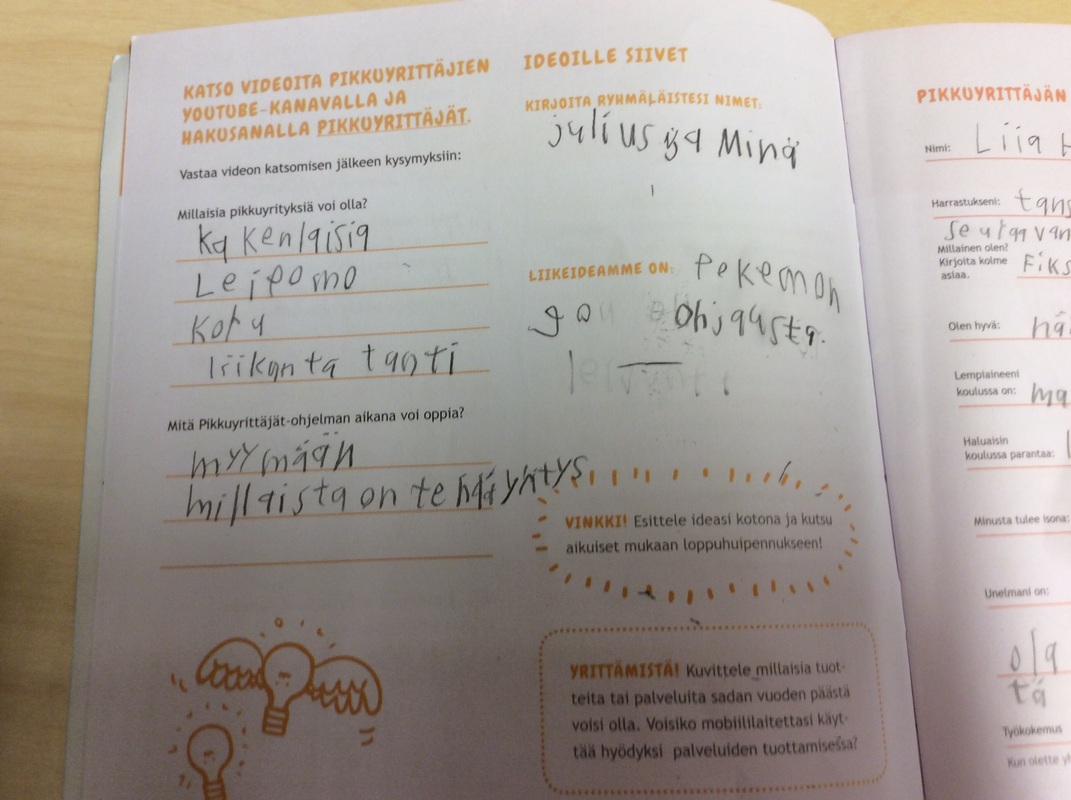 KATSO VIDEOITA PIKKUYRITTÄJIEN
YOUTUBE-KANAVALLA JA
HAKUSANALLA PIKKUYRITTÄJÄT.
Vastaa videon katsomisen jälkeen kysymyksiin:
Millaisia pikkuyrityksiä voi olla?
Kakenlaisia
Leipomo
Koru
liikanta tanti
Mitä Pikkuyrittäjät-ohjelman aikana voi oppia?
myymään
millaista on tehdä yritys
IDEOILLE SIIVET
KIRJOITA RYHMÄLÄISTESI NIMET:
julius ja Minä
LIIKEIDEAMME ON: Pekemon
go ohjausta.
VINKKI! Esittele ideasi kotona ja kutsu
aikuiset mukaan loppuhuipennukseen!
YRITTÄMISTÄ! Kuvittele millaisia tuot-
teita tai palveluita sadan vuoden päästä
voisi olla. Voisiko mobiililaitettasi käyt-
tää hyödyksi palveluiden tuottamisessa?
PIKKUYRITTÄJÄN
Nimi: Liia H
Harrastukseni: tans
seuraavan
Millainen olen?
Kirjoita kolme
asiaa. Fiks
Olen hyvä: nä
Lempiaineeni
koulussa on: ma
Haluaisin
koulussa parantaa:
Minusta tulee isona:
Unelmani on:
ola
tä
Työkokemus
Kun olette yh